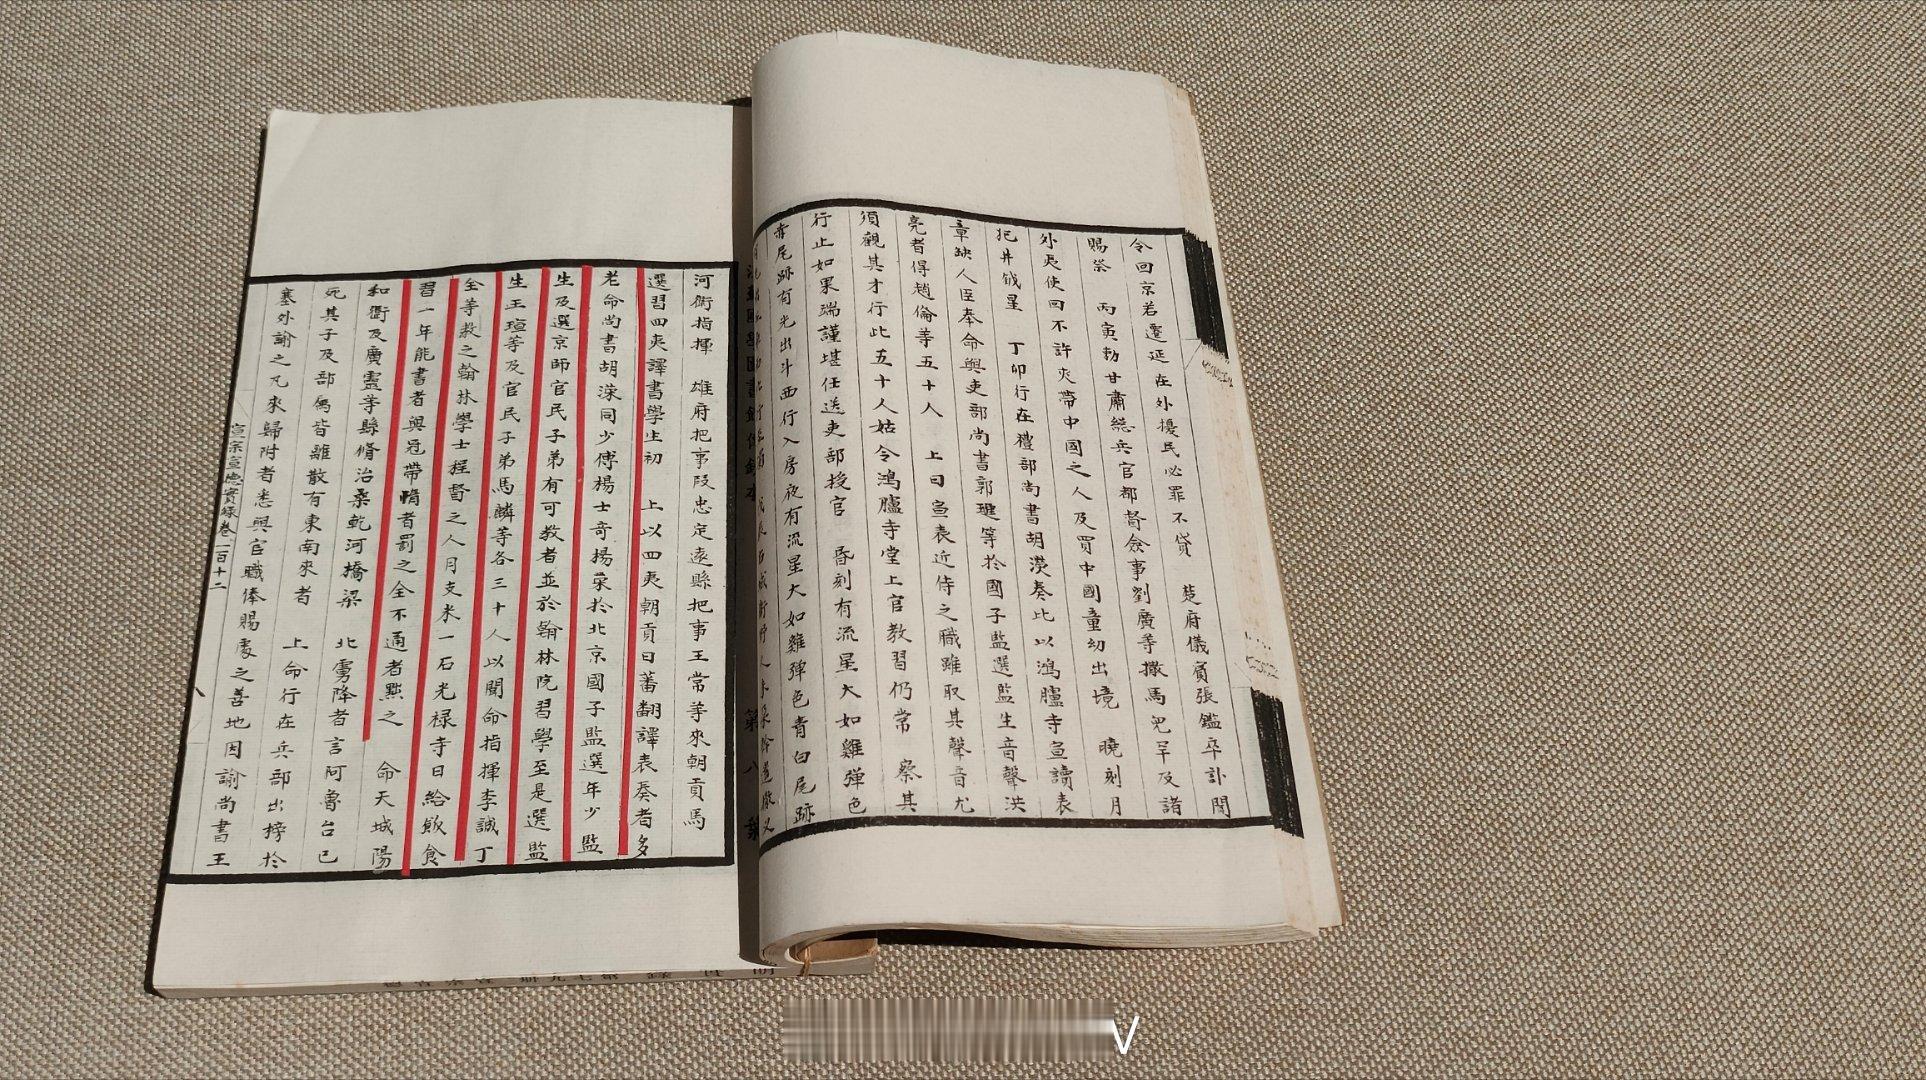 令回京若遷延在外擾民必罪不貸 楚府儀賓張鑑卒訃聞
賜祭 丙寅勑甘肅總兵官都督僉事劉廣等撒馬兒罕及諸
外夷使回不許夾帶中國之人及買中國童幼出境 曉刻月
犯井鉞星 丁卯行在禮部尚書胡濙奏比以鴻臚寺宣讀表
章缺人臣奉命與吏部尚書郭璡等於國子監選監生音聲洪
亮者得趙倫等五十人 上曰宣表近侍之職雖取其聲音尤
須觀其才行此五十人姑令鴻臚寺堂上官教習仍常 察其
行止如果端謹堪任送吏部授官 昏刻有流星大如雞彈色
青尾跡有光出斗西行入房夜有流星大如雞彈色青白尾跡
第八葉
河衛指揮 雄府把事段忠定遠縣把事王常等來朝貢馬
選習四夷譯書學生初 上以四夷朝貢日蕃翻譯表奏者多
老命尚書胡濙同少傅楊士奇揚榮於北京國子監選年少監
生及選京師官民子弟有可教者並於翰林院習學至是選監
生王瑄等及官民子弟馬麟等各三十人以聞命指揮李誠丁
全等教之翰林學士程督之人月支米一石光祿寺日給飲食
習一年能書者與冠帶惰者罰之全不通者黜之 命天城陽
和衛及廣靈等縣脩治桑乾河橋梁 北虜降者言阿魯台已
死其子及部屬皆離散有東南來者 上命行在兵部出榜於
塞外諭之凡來歸附者悉與官職俸賜處之善地因諭尚書王
宣宗宣德實錄卷一百十二
V